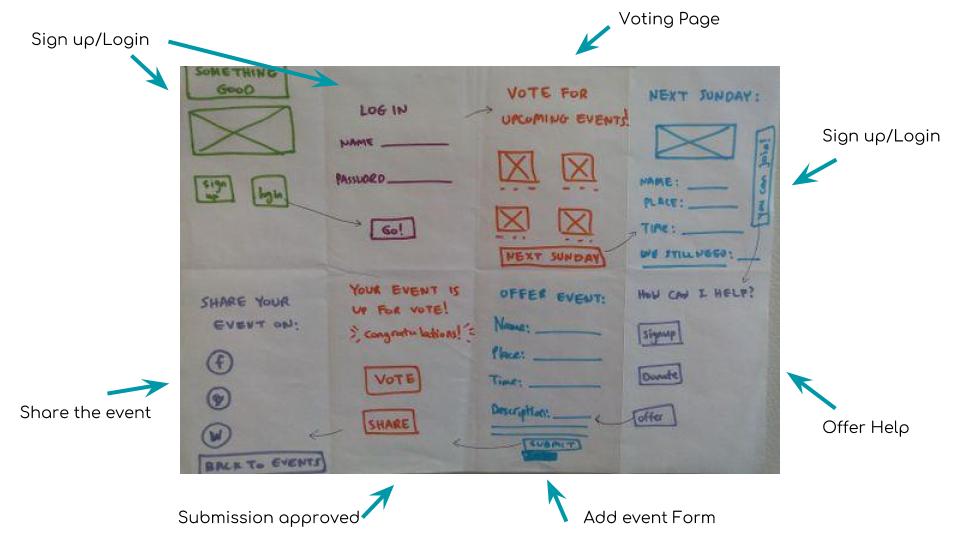 Voting Page
Sign up/Login
SOMETHING
GOOD
sign
up
login
LOG IN
NAME
PASSWORD
GO!
VOTE FOR
UPCOMING EVENTS!
NEXT SUNDAY
NEXT SUNDAY:
NAME:
PLACE:
TIME:
WE STILL NEED:
you can join!
Sign up/Login
SHARE YOUR
EVENT ON:
f
W
BACK TO EVENTS
YOUR EVENT IS
UP FOR VOTE!
Congratulations!
VOTE
SHARE
OFFER EVENT:
Name:
Place:
Time:
Description:
SUBMIT
HOW CAN I HELP?
Signup
Donate
offer
Share the event
Offer Help
Submission approved
Add event Form